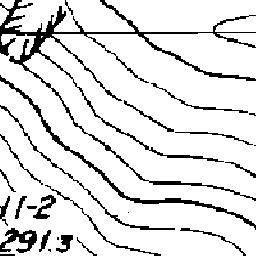 11-2
291.3